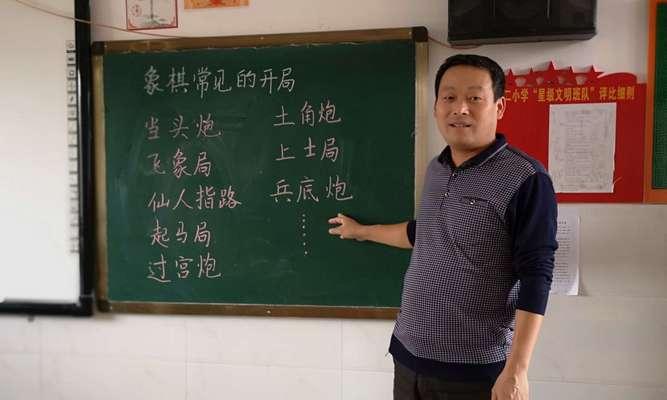 象棋常见的开局
当头炮
飞象局
仙人指路
起马局
过宫炮
土角炮
上士局
兵底炮
……
二小学“星级文明班队”评比细则